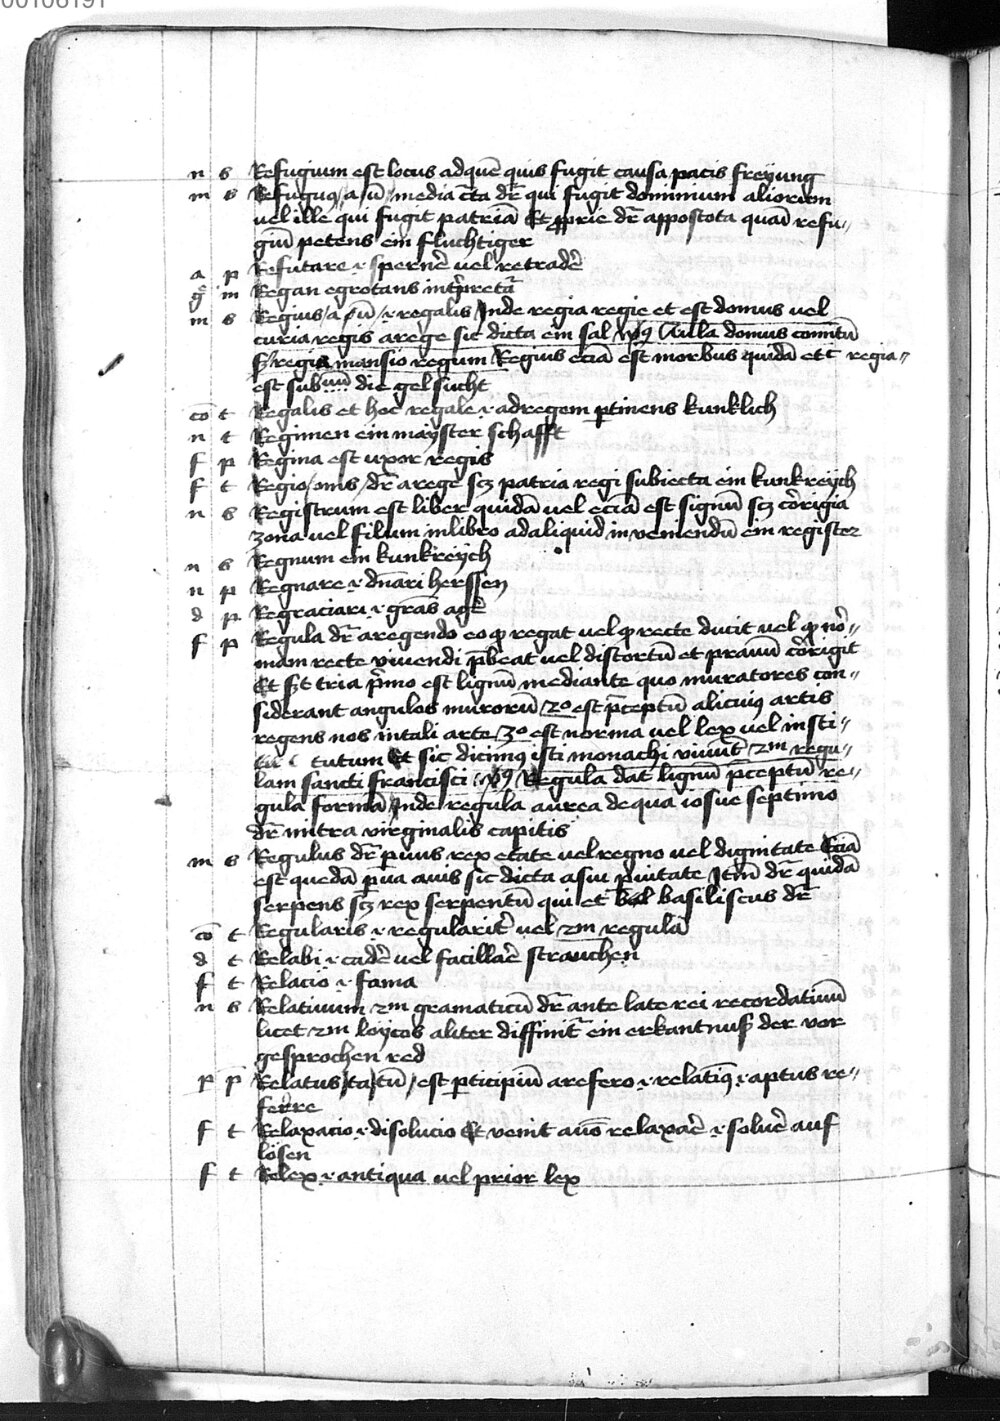 00106191
n s Refugium est locus adquē quis fugit causa pacis freyung
m s Refugus / a / ū / media c̄ta dr̄ qui fugit dominium aliorum
vel ille qui fugit patriā Et ꝓprie dr̄ appostota quasi refu//
giū petens ein fluchtiger
a p Refutare .i. spernē vel retradē
g̊ m Regan egrotans int̄pretā
m s Regius / a / ū / .i. regalis Inde regia regie et est domus vel
curia regis a rege sic dicta ein sal v̄sꝰ Aula domus comitū
s̄ regia mansio regum Regius eciā est morbus quidā etc regia//
est sub die gelsucht
cō t Regalis et hoc regale .i. ad regem ꝑtinens kunklich
n t Regimen ein mayster schafft
f p Regina est uxor regis
f t Regio / onis / dr̄ a rege sꝫ patria regi subiecta ein kunkreych
n s Registrum est liber quidā vel eciā est signū sꝫ cōrigia
zona vel filum in libro ad aliquid inveniendū ein register
n s Regnum ein kunkreych
n p Regnare .i. dn̄ari herssen
d p Regraciari .i. grās agē
f p Regula dr̄ a regendo eo ꝙ regat vel ꝙ recte ducit vel ꝙ nō//
mam recte vivendi p̄beat vel distortū et pravū cōrigit
Et s̄t tria p̄mo est lignū mediante quo muratores con//
siderant angulos murorū 2o est p̄ceptū alicuiꝰ artis
regens nos in tali arte 3o est norma vel lex vel insti//
tutum Et sic dicimꝰ isti monachi viuūt 2m regu//
lam sancti francisci v̄sꝰ Regula dat lignū p̄ceptū re//
gula formā Inde regula aurea de qua iosue septimo
dr̄ mitra virginalis capitis
m s Regulus dr̄ ꝑvus rex etate vel regno vel dignitate Eciā
est quedā ꝑva avis sic dicta a sui ꝑvitate Itm̄ dr̄ quidā
serpens sꝫ rex serpentū qui et basiliscus dr̄
cō t Regularis .i. regularit̄ vel 2m regulā
d t Relabi .i. cadē vel facillāē strauchen
f t Relacio .i. fama
n s Relativum 2m gramaticū dr̄ ante late rei recordativū
licet 2m loycos aliter diffinit̄ ein erkantnuß der vor
gesprochen red
p p̄ Relatus / ta / tū / est ꝑticipiū a refero .i. relatiꝰ .i. aptus re//
ferre
f t Relaxacio .i. disolucio Et venit a vō relaxāē .i. solvē auf
lösen
f t Relex .i. antiqua vel prior lex